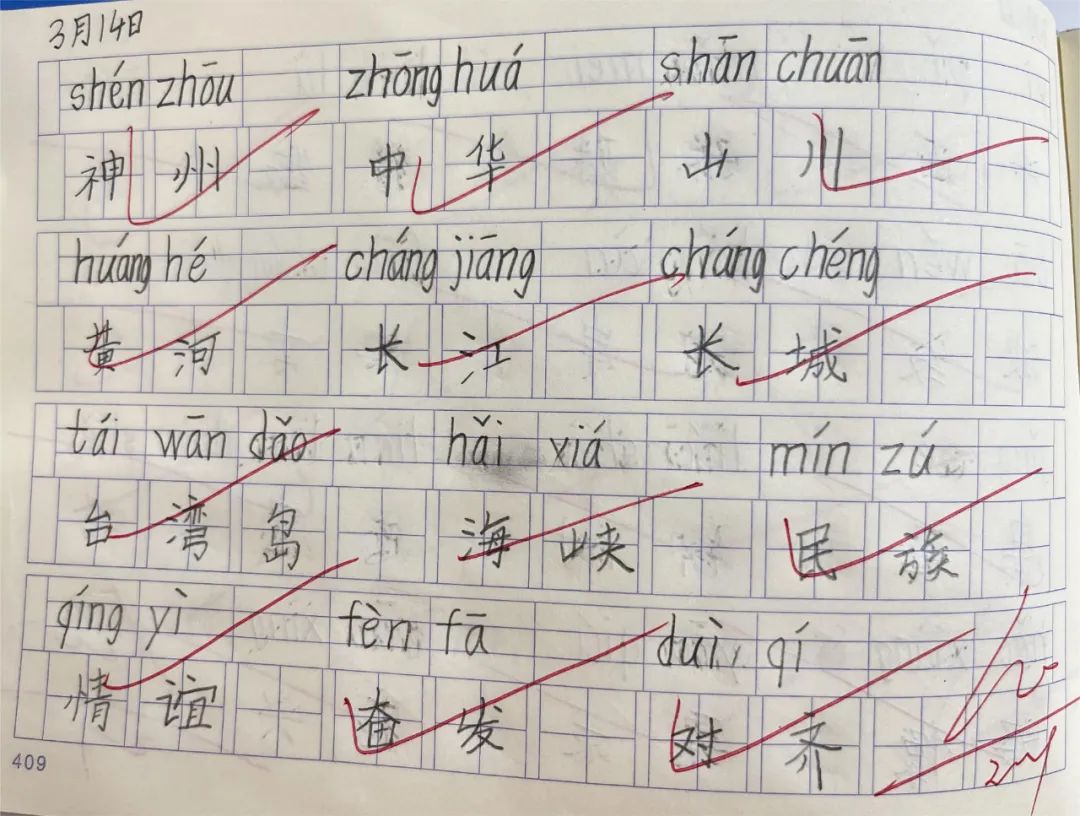 3月14日
shén zhōu zhōng huá shān chuān
神州 中华 山川
huáng hé cháng jiāng cháng chéng
黄河 长江 长城
tái wān dǎo hǎi xiá mín zú
台湾岛 海峡 民族
qíng yì fèn fā duì qí
情谊 奋发 对齐
409